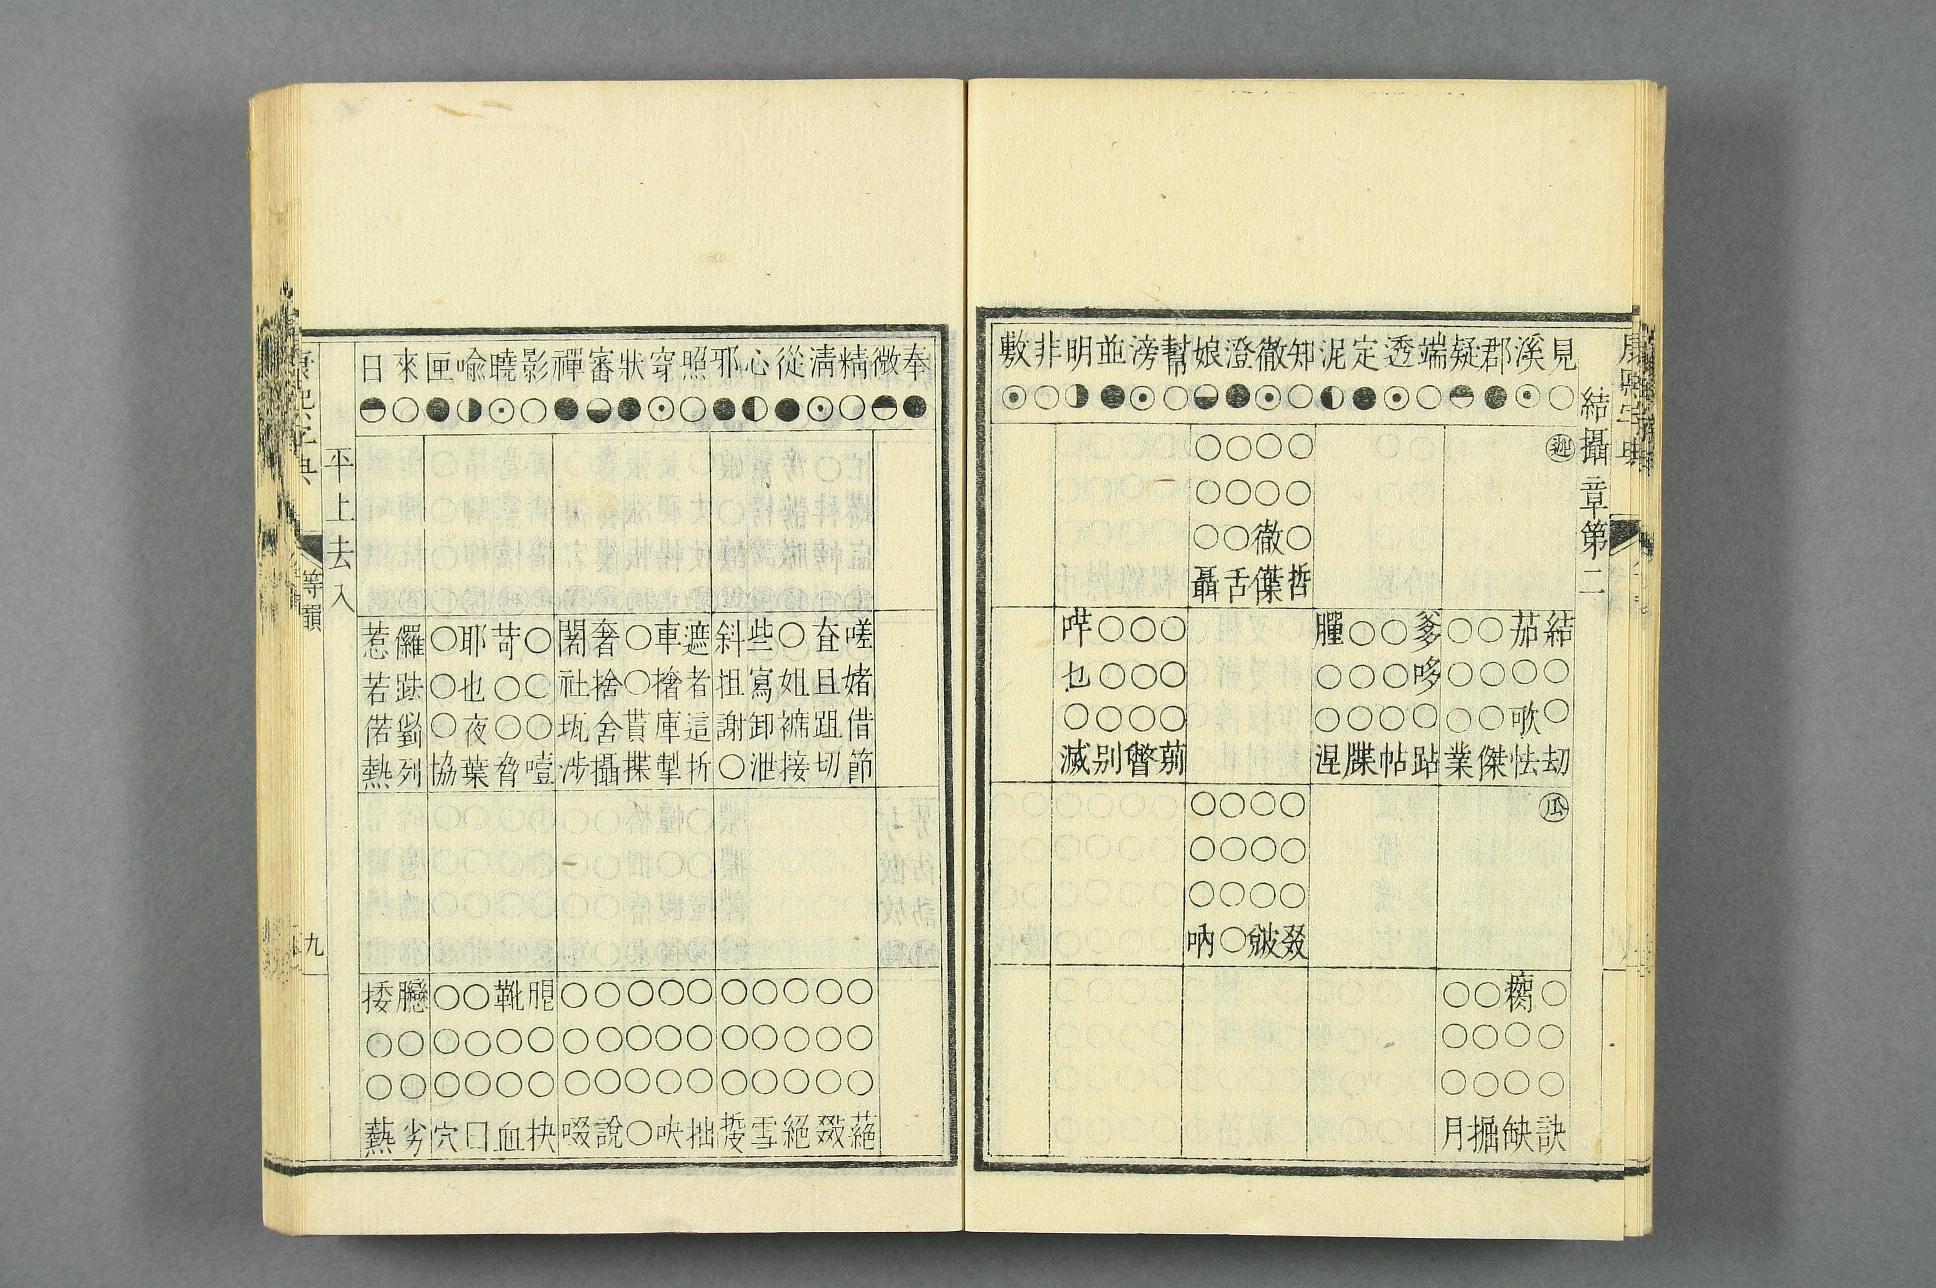 結攝章第二
見溪郡疑端透定泥知徹澄娘幫滂並明非敷
○☉●◒○☉●◐○☉●◒○☉●◑○☉
迦
○○○○
○○○○
○徹○○
哲傑舌聶
結茄○○爹○○䏲○○○哶
○○○○哆○○○○○○乜
○歌○○○○○○○○○○
劫怯傑業跕帖牒涅䓖瞥别滅
瓜
○○○○
○○○○
○○○○
叕皴○吶
○瘸○○
○○○○
○○○○
訣缺掘月
奉微精清從心邪照穿狀審禪影曉喻匣來日
●◓○☉●◐●○☉●◒●○☉◑●○◓
嗟査○些斜遮車○奢闍○苛耶○儸惹
媎且姐寫抯者撦○捨社○○也○跇若
借跙褯卸謝這厙貰舍𡊟○○夜○㔏偌
節切接泄○折掣揲攝涉噎脅葉協列熱
○○○○○○○○○○䏿靴○○臝捼
○○○○○○○○○○○○○○○○
○○○○○○○○○○○○○○○○
蕝敠絕雪踅拙吷○說啜抉血曰穴劣爇
平上去入
康熙字典
等韻
九